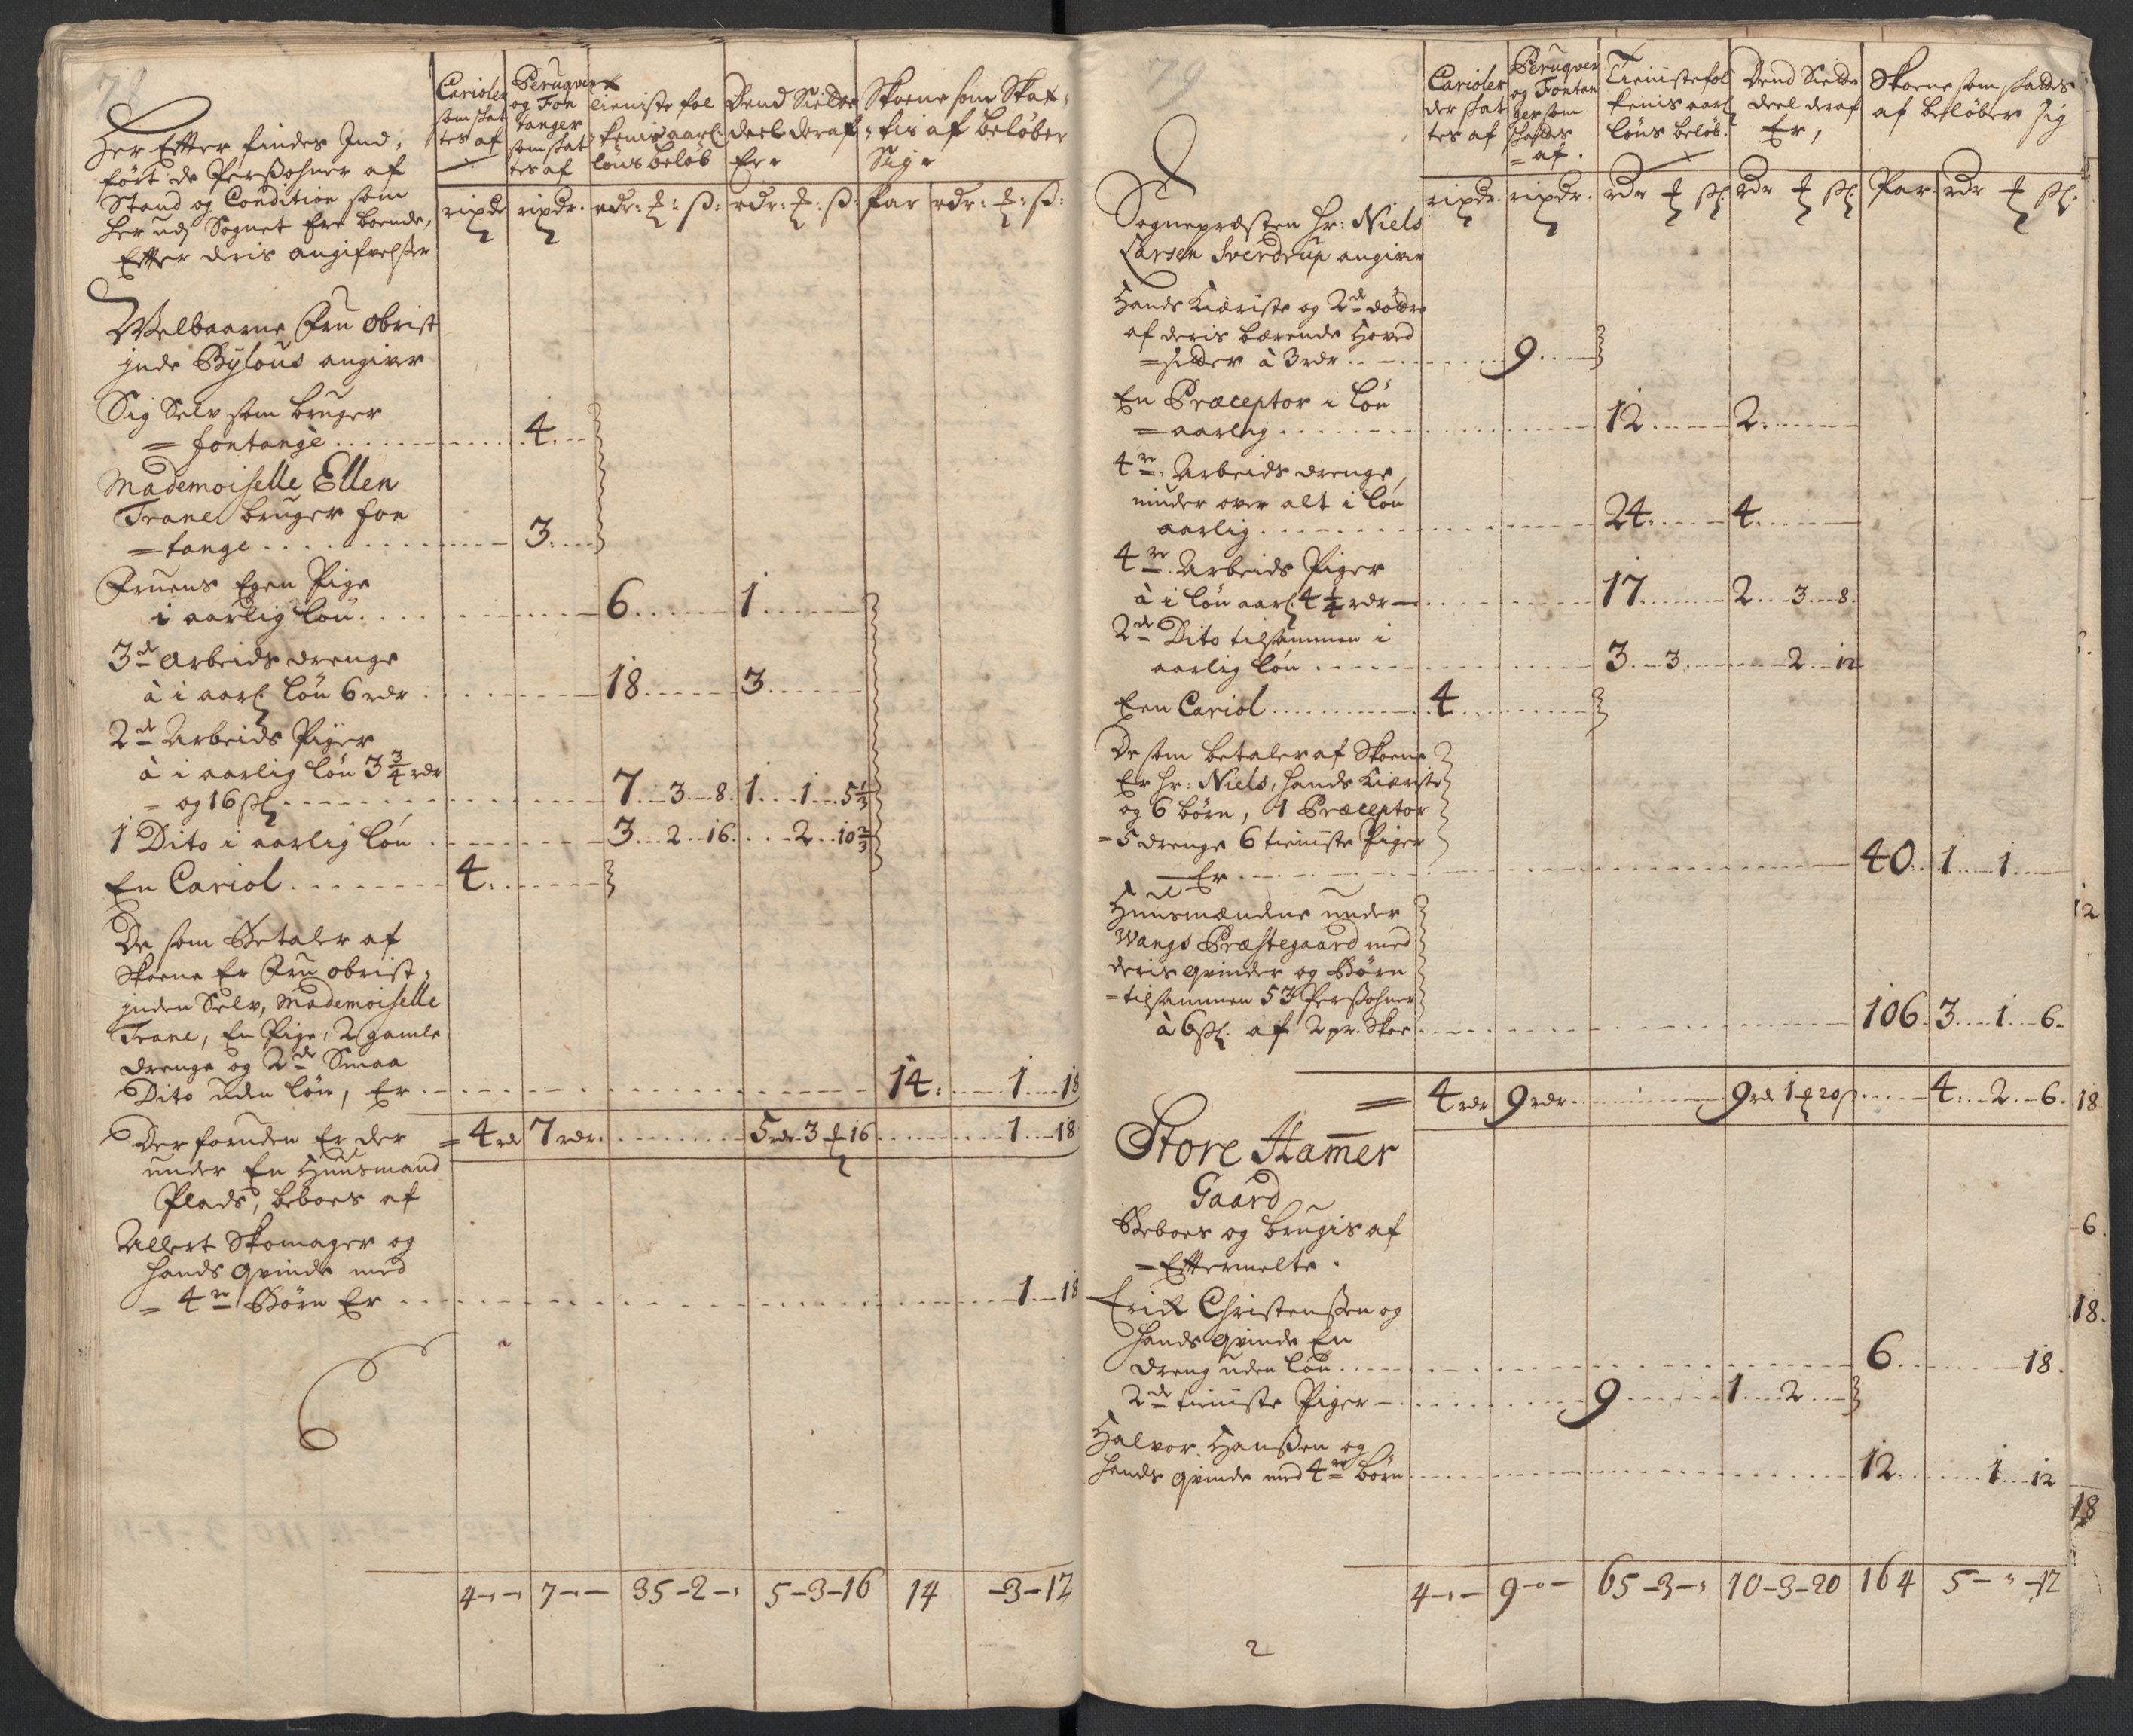 78
Her Efter findes Ind„
ført de Persohner af
Stand og Condition som
her udj Sognet Ere boende,
Efter deris angifvelser
Carioler
som skat
tes af
Peruqver
og Fon
tanger
som skat
tes af
Tieniste fol
kenis aarl
løns beløb
Dend Siette
deel deraf
Er
Skoene som Skat„
tis af beløber
Sig
rixdr
rixdr.
rdr: ƺ: ß:
rdr: ƺ: ß:
Par
rdr: ƺ: ß:
Welbaarne Fru Obrist
jnde Bylous angiver
Sig Selv som bruger
= fontange . . . . . 4. . .
Mademoiselle Ellen
Trane bruger fon
= tange . . . . . 3. . .
Fruens Egen Pige
i aarlig løn . . . . . 6. . . . 1. . . .
3de Arbeids drenge
à i aarl løn 6 rdr . . . . . 18. . . . 3. . . .
2de Arbeids Piger
à i aarlig løn 3 3/4 rdr
= og 16 ßl . . . . . 7. . 3. . 8. 1. . 1. . 5 1/3
1 Dito i aarlig løn . . . . . 3. . 2. . 16. . . 2. . 10 2/3
En Cariol . . . . . 4. . . .
De som Betaler af
Skoene Er Fru Obrist„
jnden Selv, Mademoiselle
Trane, En Pige, 2 gamle
drenge og 2de Smaa
Dito uden løn, Er . . . . . 14: . . . 1. . 18
Der foruden Er der = 4 rd 7 rdr. . . . . 5 rdr. 3 ƺ 16 . . . . 1. . 18
under En Huusmand
Plads, beboes af
Allert Skomager og
hands qvinde med
= 4re Børn Er . . . . . 1. . 18
4 - „ - 7 - „ - 35 - 2 - „ 5 - 3 - 16 14 - 3 - 12
79
Carioler
der skat
tes af
Peruqver
og Fontan
ger som
skattes
= af.
Tienistefol
kenis aarl
løns beløb.
Dend Siette
deel deraf
Er,
Skoene som skattes
af beløber sig
rixdr.
rixdr.
rdr ƺ ßl.
rdr ƺ ßl.
Par.
rdr ƺ ßl.
Sognepræsten Hr: Niels
Larsen Sverdrup angiver
Hands Kiæriste og 2de døttre
af deris bærende Hoved
= setter à 3 rdr . . . . . 9. . . .
En Præceptor i løn
= aarlig . . . . . 12. . . . 2. . . .
4re Arbeids drenge,
under over alt i løn
aarlig . . . . . 24. . . . 4. . . .
4re Arbeids Piger
à i løn aarl. 4 1/4 rdr — . . . . . 17. . . . 2. . 3. . 8.
2de Dito tilsammen i
aarlig løn . . . . . 3. . 3. . . . 2. . 12
Een Cariol . . . . . 4. . . .
De som betaler af Skoene
Er Hr: Niels, hands Kiæriste
og 6 børn, 1 Præceptor
= 5 drenge 6 tieniste Piger
Er . . . . . 40. . 1. . 1. . .
Huusmændene under
Wangs Præstegaard med
deris qvinder og Børn
= tilsammen 53 Persohner
à 6 ßl. af 2 pr. Skoe . . . . . 106. 3. . 1. . 6.
= 4 rdr 9 rdr. . . . . 9 rd 1 ƺ 20 ß . . . . 4. . 2. . 6.
Store Ham̄er
Gaard
Beboes og brugis af
= Eftermelte.
Erick Christensen og
hands qvinde En
dreng uden løn . . . . . 6. . . . 18.
2de tieniste Piger — . . . . . 9. . . . 1. . 2. . .
Halvor Hanßen og
hands qvinde med 4re børn . . . . . 12. . . . 1. . 12
4 - „ - 9 - „ - 65 - 3 - „ 10 - 3 - 20 164 5 - „ - 12
2
12
18
6.
18.
18